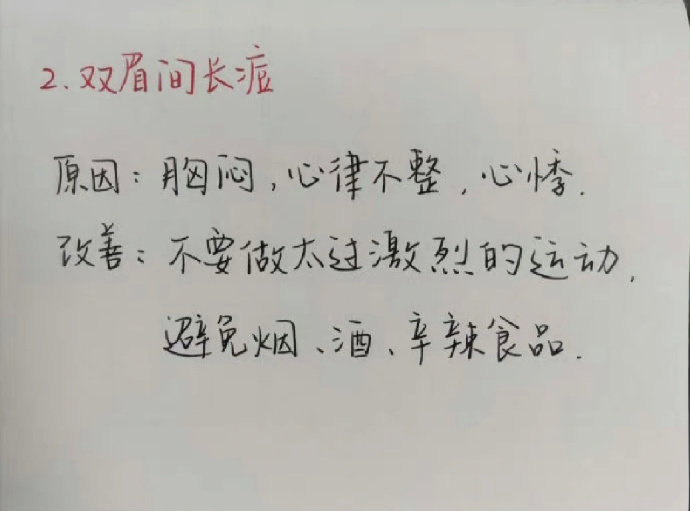 2.双眉间长痘
原因：胸闷，心律不整，心悸.
改善：不要做太过激烈的运动，
避免烟、酒、辛辣食品.